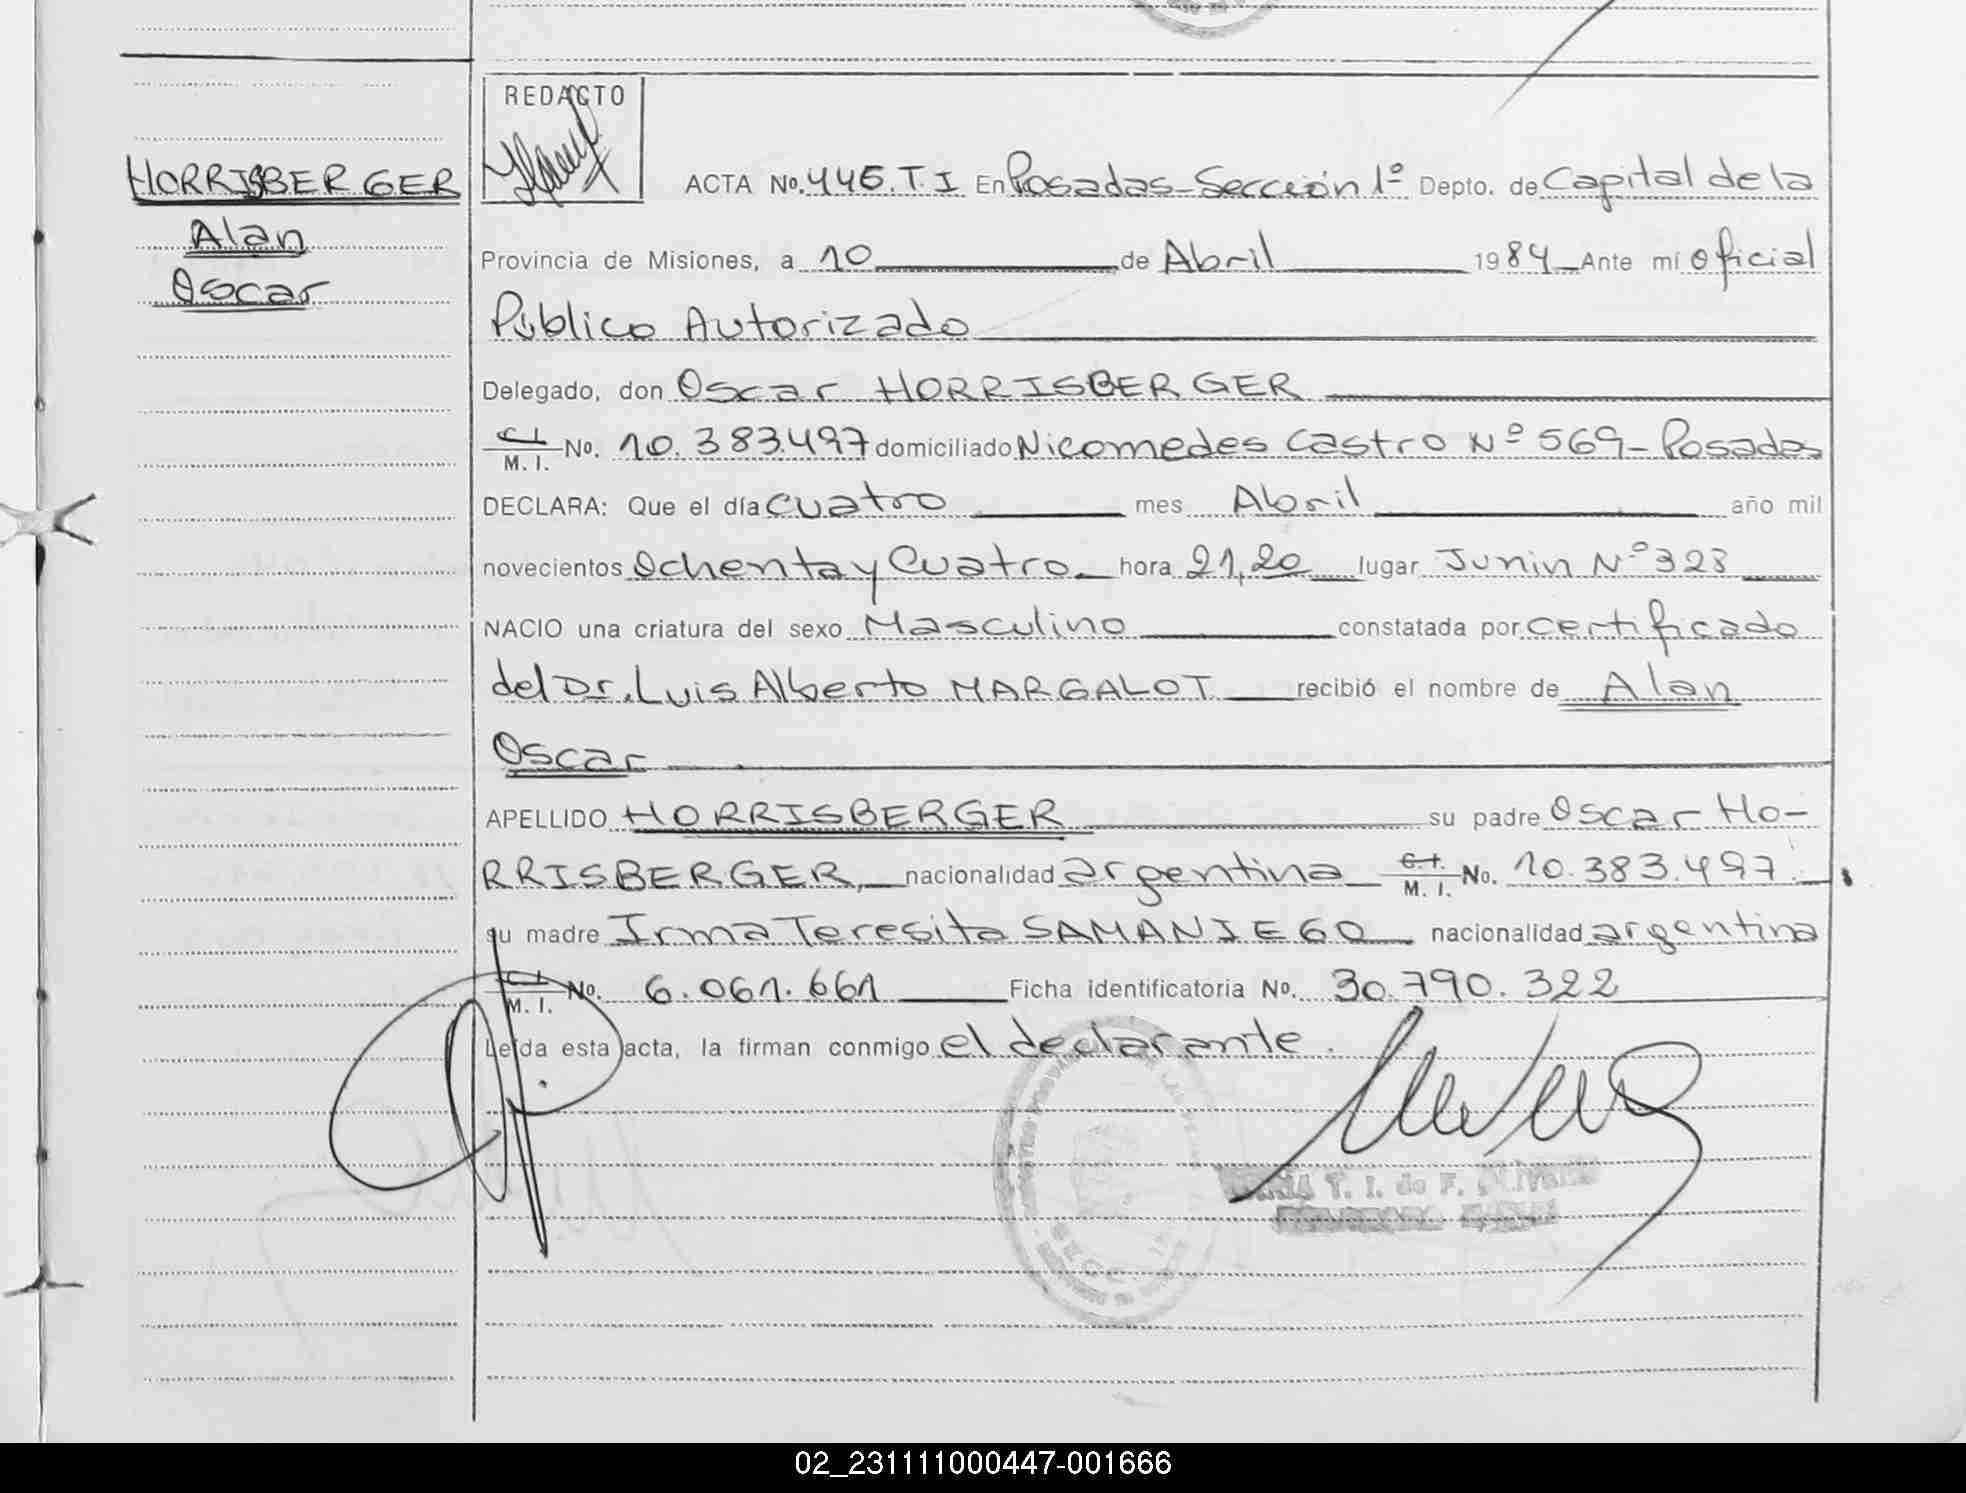 REDACTO
HORRISBERGER
Alan
Oscar
ACTA No. 446. T. I En Posadas - Sección 1º Depto. de Capital de la
Provincia de Misiones, a 10 de Abril 1984 Ante mí Oficial
Público Autorizado
Delegado, don Oscar HORRISBERGER
C. I. M. I. No. 10.383.497 domiciliado Nicomedes Castro Nº 569 - Posadas
DECLARA: Que el día cuatro mes Abril año mil
novecientos Ochenta y Cuatro hora 21,20 lugar Junin Nº 328
NACIO una criatura del sexo Masculino constatada por certificado
del Dr. Luis Alberto MARGALOT recibió el nombre de Alan
Oscar
APELLIDO HORRISBERGER su padre Oscar Ho-
RRISBERGER, nacionalidad argentina C. I. M. I. No. 10.383.497.
su madre Irma Teresita SAMANIEGO nacionalidad argentina
C. I. M. I. No. 6.061.661 Ficha identificatoria No. 30.790.322
Leída esta acta, la firman conmigo el declarante.
T. I. de F.
02_231111000447-001666